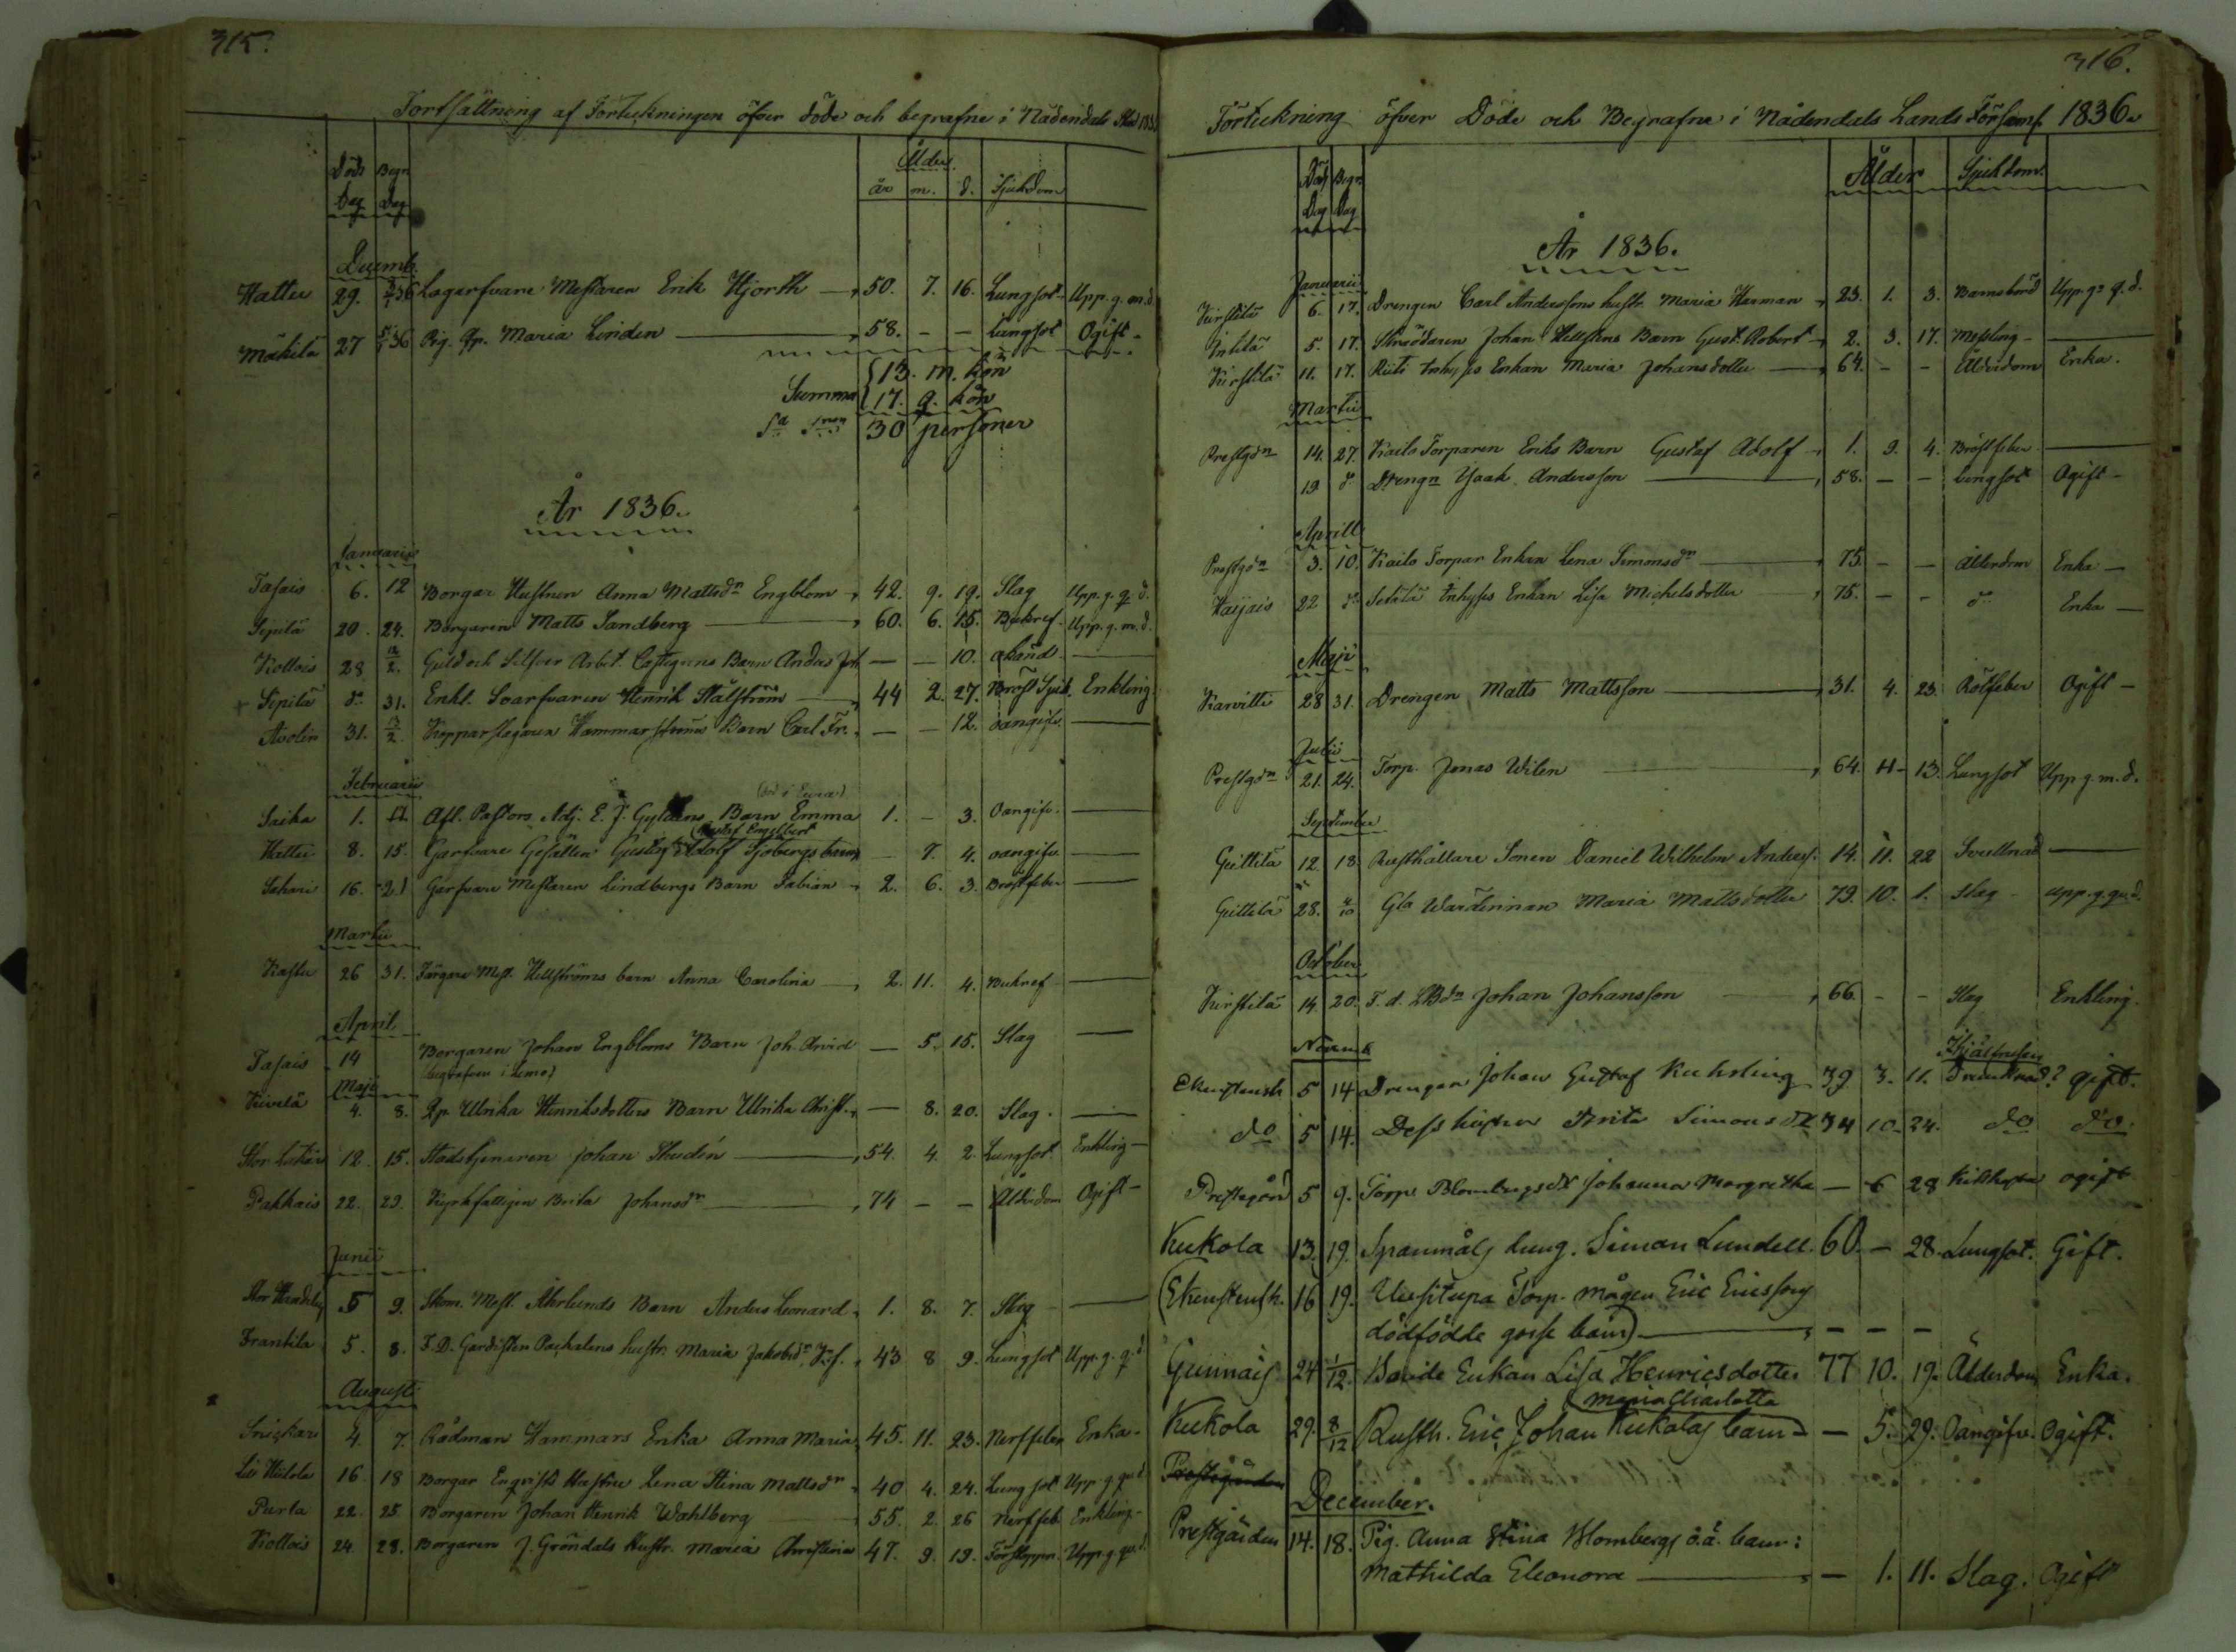 315.
Fortsättning af Förteckningen öfver döde och begrafne i Nådendals Stad
Döds Dag Begr Dag Ålder år m. d. Sjukdom
Decemb.
Hatter 29. Lagarfvare Mestaren Erik Hjorth 50. 7. 16. Lungsot. Upp. g. m. d.
Mäkilä 27 Pig. Qp. Maria Linden 58. - - Lungsot Ogift -
Summa 13. m. kön
17. q. kön
30 personer
År 1836.
Januarii
Tasais 6. 12 Borgar Hustrun Anna Mattsdn Engblom 42. 9. 19. Slag Upp. g. q. d.
Sipilä 20. 24. Borgaren Matts Sandberg 60. 6. 15. Bukref. Upp. g. m. d.
Kollois 28 2/2. Guld och Silfver Arbet. Barn Anders Joh - - 10. okänd
+ Sipilä do 31. Enkl. Svarfvaren Henrik Stålström 44 2. 27. Bröst Sjuk. Enkling
Avolin 31. Kopparslagaren Hammarströms Barn Carl Fr. - - 12. oangifv.
Februarii
Saika 1. Afl. Pastors Adj. E. J. Gyldéns Barn Emma 1. - 3. Oangifv.
Hatter 8. 15. Garfvare Gesällen Gustaf Adolf Sjöbergs barn (Gustaf Engelbert - 7. 4. oangifv.
Sahari 16. 21 Garfvare Mestaren Lindbergs Barn Fabian 2. 6. 3. Bröstfeber
Martii
Kaster 26 31. Färgare Mest. Hellströms barn Anna Carolina 2. 11. 4. Bukref
April
Tasais 14 Borgaren Johan Engbloms Barn Joh. Arvid - 5. 15. Slag
(begrafven i Lemo)
Maji
Kivelä 4. 8. Qp. Ullrika Henriksdotters Barn Ullrika Christ. - 8. 20. Slag.
12. 15. Stadstjenaren Johan 54. 4. 2. Lungsot. Enkling
Pakkais 22. 29. Kyrkfattigen Brita Johansdn 74 - - Ålderdom Ogift -
Junii
5 9. Skom. Mest. Åhrlunds Barn Anders Leonard 1. 8. 7. Slag
Frantila 5. 8. F. D. Gardisten hustr. Maria Jakobsdr 43 8 9. Lungsot Upp. g. q. d
Augusti
Snickars 4. 7. Rådman Hammars Enka Anna Maria 45. 11. 23. Nerffeber Enka -
16. 18 Borgar Enqvists Hustru Lena Stina Mattsdr 40 4. 24. Lungsot Upp. g. qu. d
Purla 22. 25 Borgaren Johan Henrik Wahlberg 55. 2. 26 Nerffeb. Enkling -
Kollois 24. 28. Borgaren J. Gröndals Hustr. Maria Christina 47. 9. 19. Förstoppn. Upp. g. qu. d.
316.
Förteckning öfver Döde och Begrafne i Nådendals Lands Församl. 1836.
Döds Dag Begr. Dag Ålder Sjukdom.
År 1836.
Januarii
Kirstilä 6. 17. Drengen Carl Anderssons hustr. Maria Herman 23. 1. 3. Barnsbörd Upp. g. q. d.
Intilä 5. 17. Skräddaren Johan Hellstens Barn Gust. Robert 2. 3. 17. Messling -
Kirstilä 11. 17. Inhyses Enkan Maria Johansdotter 64. - - Ålderdom Enka.
Martii
Prestgdn 14. 27. Kailo Torparen Eriks Barn Gustaf Adolf 1. 9. 4. Bröstfeber
19 do Drengn Isaak Andersson 58. - - Lungsot Ogift -
Aprill
Prestgdn 3. 10. Kailo Torpar Enkan Lena Simonsdr 75. - - Ålderdom Enka -
Kaijais 22 do Setälä Inhyses Enkan Lisa Michelsdotter 75. - - do Enka -
Maji
Karvitti 28 31. Drengen Matts Mattsson 31. 4. 23. Rötfeber Ogift -
Julii
Prestgdn 21. 24. Torp. Jonas Wilen 64. 11 - 13. Lungsot Upp g. m. d.
September
Grittilä 12. 18. Rusthållare Sonen Daniel Wilhelm Anderss. 14. 11. 22 Svullnad
Grittilä 28. 4/10 Gla Wärdinnan Maria Mattsdotter 79. 10. 1. Slag - upp. g. qu. d.
October
Kirstilä 14. 20. F. d. Johan Johansson 66 - - Slag Enkling.
Novemb
5 14 Drengen Johan Gustaf Kuhrling 39. 3. 11. Drunknad? gift.
do 5 14. Dess hustru Brita Simonsdr 34 10. 24. do do.
Prestegård 5 9. Torp. Blombergs dr Johanna Margretha - 6 28 Kikhosta ogift
Kukola 13. 19. Spanmåls Simon Lundell. 60. - 28. Lungsot. Gift.
16 19. Uusitupa Torp. mågen Eric Ericssons
dödfödde gosse barn) - - -
Gunnais 24 1/12. Bonde Enkan Lisa Henricsdotter 77 10. 19. Ålderdom Enka.
Maria Charlotta
Kukola 29. 8/12 Rusth. Eric Johan Kukolas barn - 5. 29. Oangifv. Ogift.
Prestegården
December.
Prestgården 14. 18. Pig. Anna Stina Blombergs o.ä. barn:
Mathilda Eleonora - 1. 11. Slag. Ogift